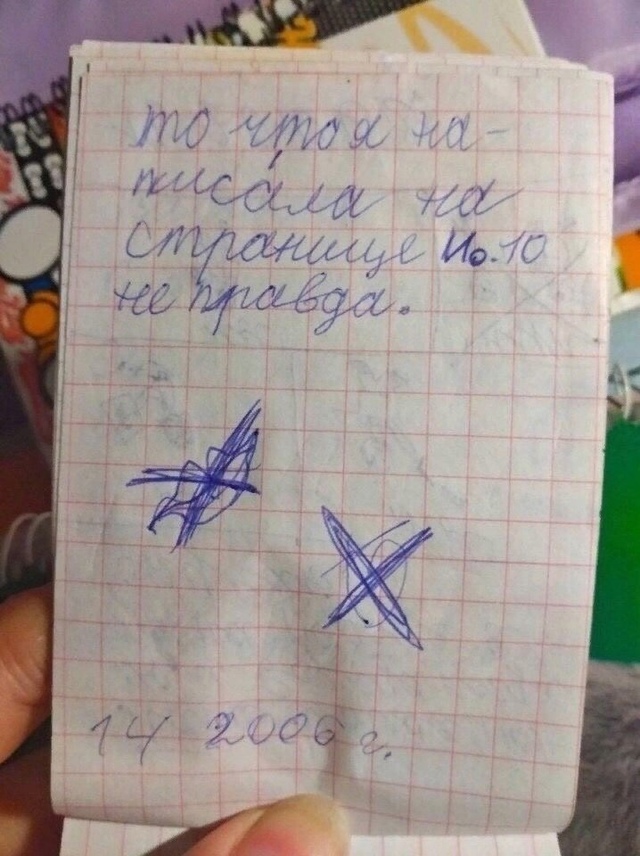 то что я на-
писала на
странице No.10
не правда.
14 2006 г.